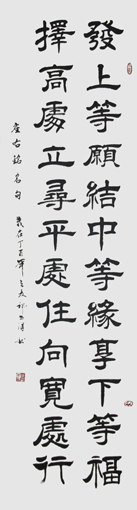 發上等願結中等緣享下等福
擇高處立尋平處住向寬處行
座右銘名句
歲在丁酉年